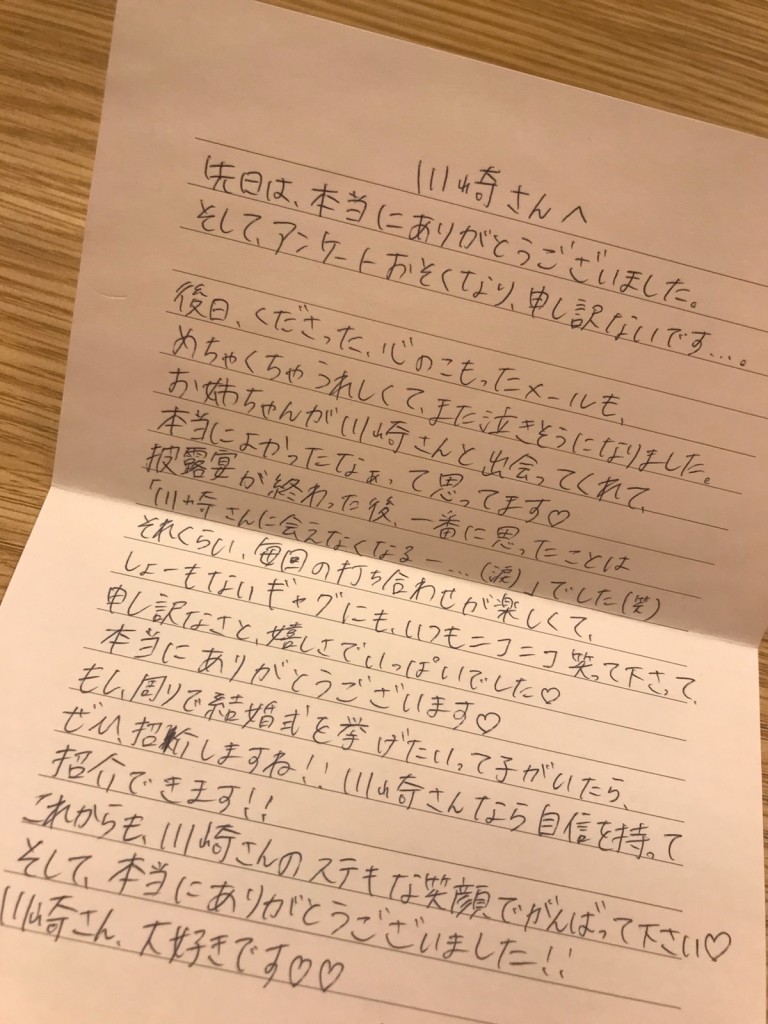 川崎さんへ
先日は、本当にありがとうございました。
そして、アンケートおそくなり、申し訳ないです…。
後日、くださった、心のこもったメールも、
めちゃくちゃうれしくて、また泣きそうになりました。
お姉ちゃんが川崎さんと出会ってくれて、
本当によかったなぁって思ってます♡
披露宴が終わった後、一番に思ったことは
「川崎さんに会えなくなるー…(涙)」でした(笑)
それくらい、毎回の打ち合わせが楽しくて、
しょーもないギャグにも、いつもニコニコ笑って下さって、
申し訳なさと、嬉しさでいっぱいでした♡
本当にありがとうございます♡
もし、周りで結婚式を挙げたいって子がいたら、
ぜひ、招介しますね!! 川崎さんなら自信を持って
招介できます!!
これからも、川崎さんのステキな笑顔でがんばって下さい♡
そして、本当にありがとうございました!!
川崎さん、大好きです♡♡